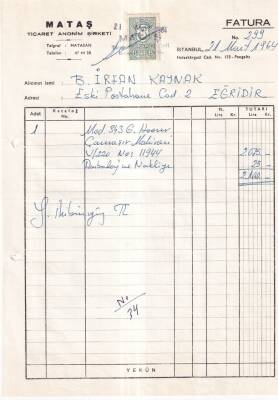 MATAŞ
TİCARET ANONİM ŞİRKETİ
Telgraf : MATASAN
Telefon : 47 44 58
FATURA
No. 299
İSTANBUL, 21 Mart 1964
Halaskârgazi Cad. No. 175 - Pangaltı
Alıcının ismi B. İRFAN KAYNAK
Adresi Eski Postahane Cad 2 EĞRİDİR
Adet Katalog No. F. Lira Kr. TUTARI Lira Kr.
1 Mod 943 G. Hoover
Çamaşır Makinası
V/220 No: 11944 2.075 —
Ambalaj ve Nakliye 25 —
2.100 —
Y. İkibinyüz TL
No
34
YEKÛN